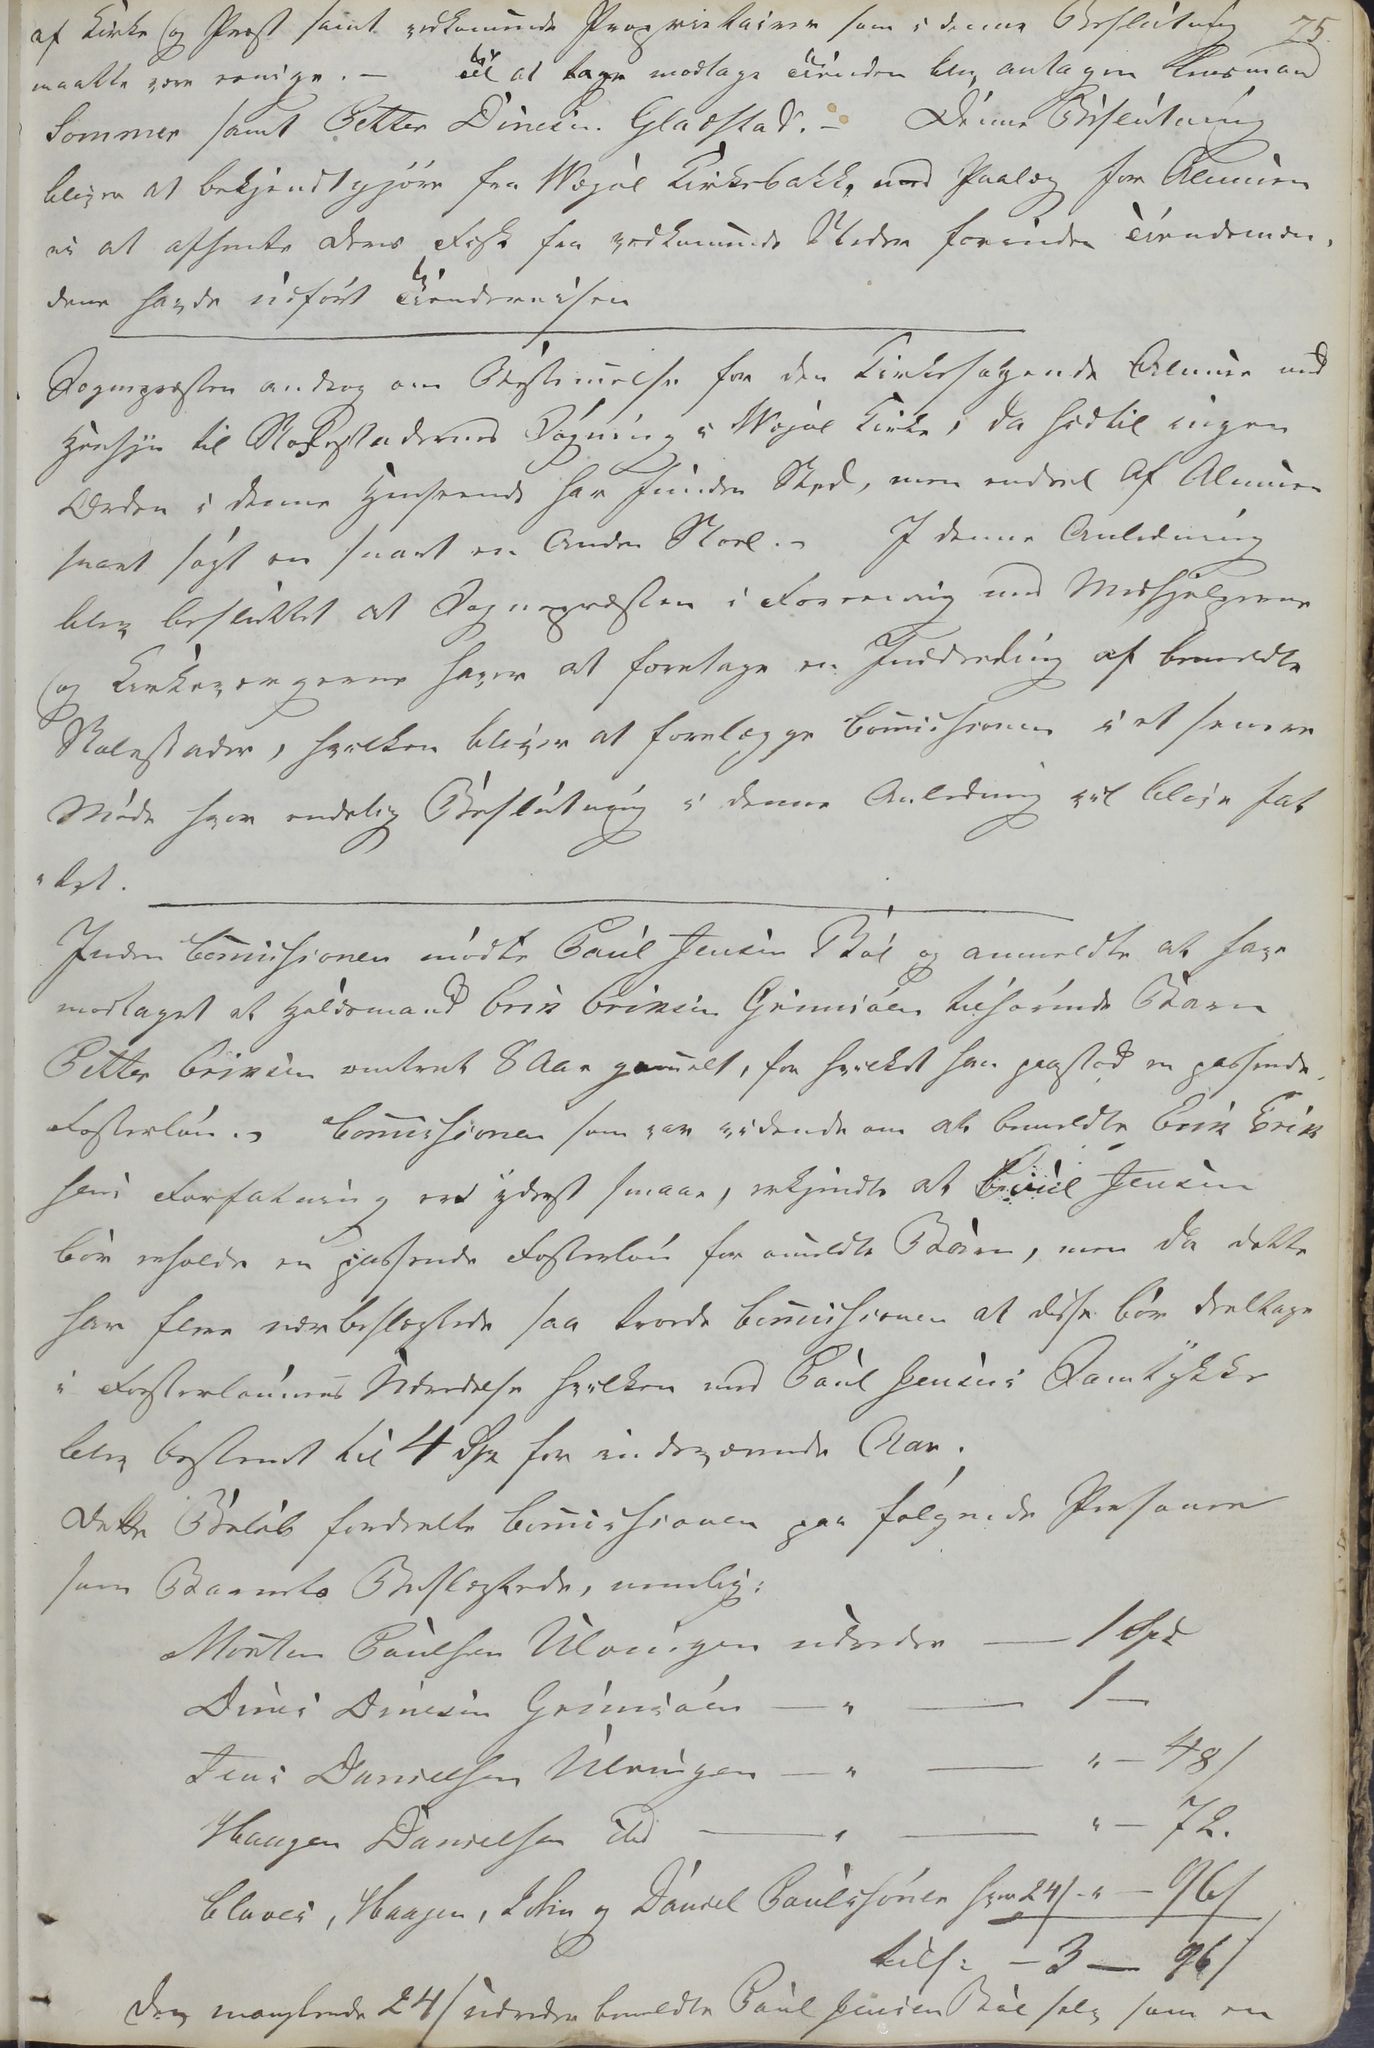 af Kirke og Præst samt vedkommende Proprietairer som i denne Beslutning 75.
maatte være eenige. – Til at tage modtage Tiienden blev antagen Lensmand
Sommer samt Petter Dinesen Gladstad. – Denne Beslutning
bliver at bekjendtgjöre fra Wægöe Kirkebakke med Paalæg for Almuen
ei at afhente deres Fisk fra vedkommende Steder forinden Tiendemæn-
dene havde udfört Tiendereisen
Sognepræsten androg om Bestemmelse for den Kirkesögende Almue med
Hensyn til Stolestadernes Sögning i Wægöe Kirke, da hidtil ingen
Orden i denne Henseende har funden Sted, men endeel af Almuen
snart sögt en snart en anden Stoel. – I denne Anledning
blev besluttet at Sognepræsten i Forening med Medhjelperne
og Kirkeværgerne haver at foretage en Inddeeling af bemeldte
Stolestader, hvilken bliver at forelægge Commissionen i et senere
Möde hvor endelig Beslutning i denne Anledning vil blive fat
tet.
Inden Commissionen mödte Paul Jensen Böe og anmeldte at have
modtaget et Huusmand Erik Eriksen Grimsöen tilhörende Barn
Petter Eriksen omtrent 8 Aar gammelt, for hvilket han paastod en passende
Fosterlön. – Commissionen som var vidende om at bemeldte Erik Erik
sens Forfatning er yderst smaae, erkjendte at Paul Jensen
bör erholde en passende Fosterlön for anmeldte Barn, men da dette
har flere nærbeslægtede saa troede Commissionen at disse bör deeltage
i Fosterlönnens Udredelse hvilken med Paul Jensens Samtykke
blev bestemt til 4 Spd for indeværende Aar.
Dette Belöb fordeelte Commissionen paa fölgende Personer
som Barnets Beslægtede, nemlig:
Morten Paulsen Ulvingen udreder — 1 Spd
Dines Dinesen Grimsöen — " — 1 —
Jens Danielsen Ulvingen — " — " — 48/
Haagen Danielsen ibd — " — " — 72.
Claus, Haagen, John og Daniel Paulssöner hver 24/ - " — 96/
tils: — 3 — 96/
Den manglende 24/ udreder bemeldte Paul Jensen Böe selv som en